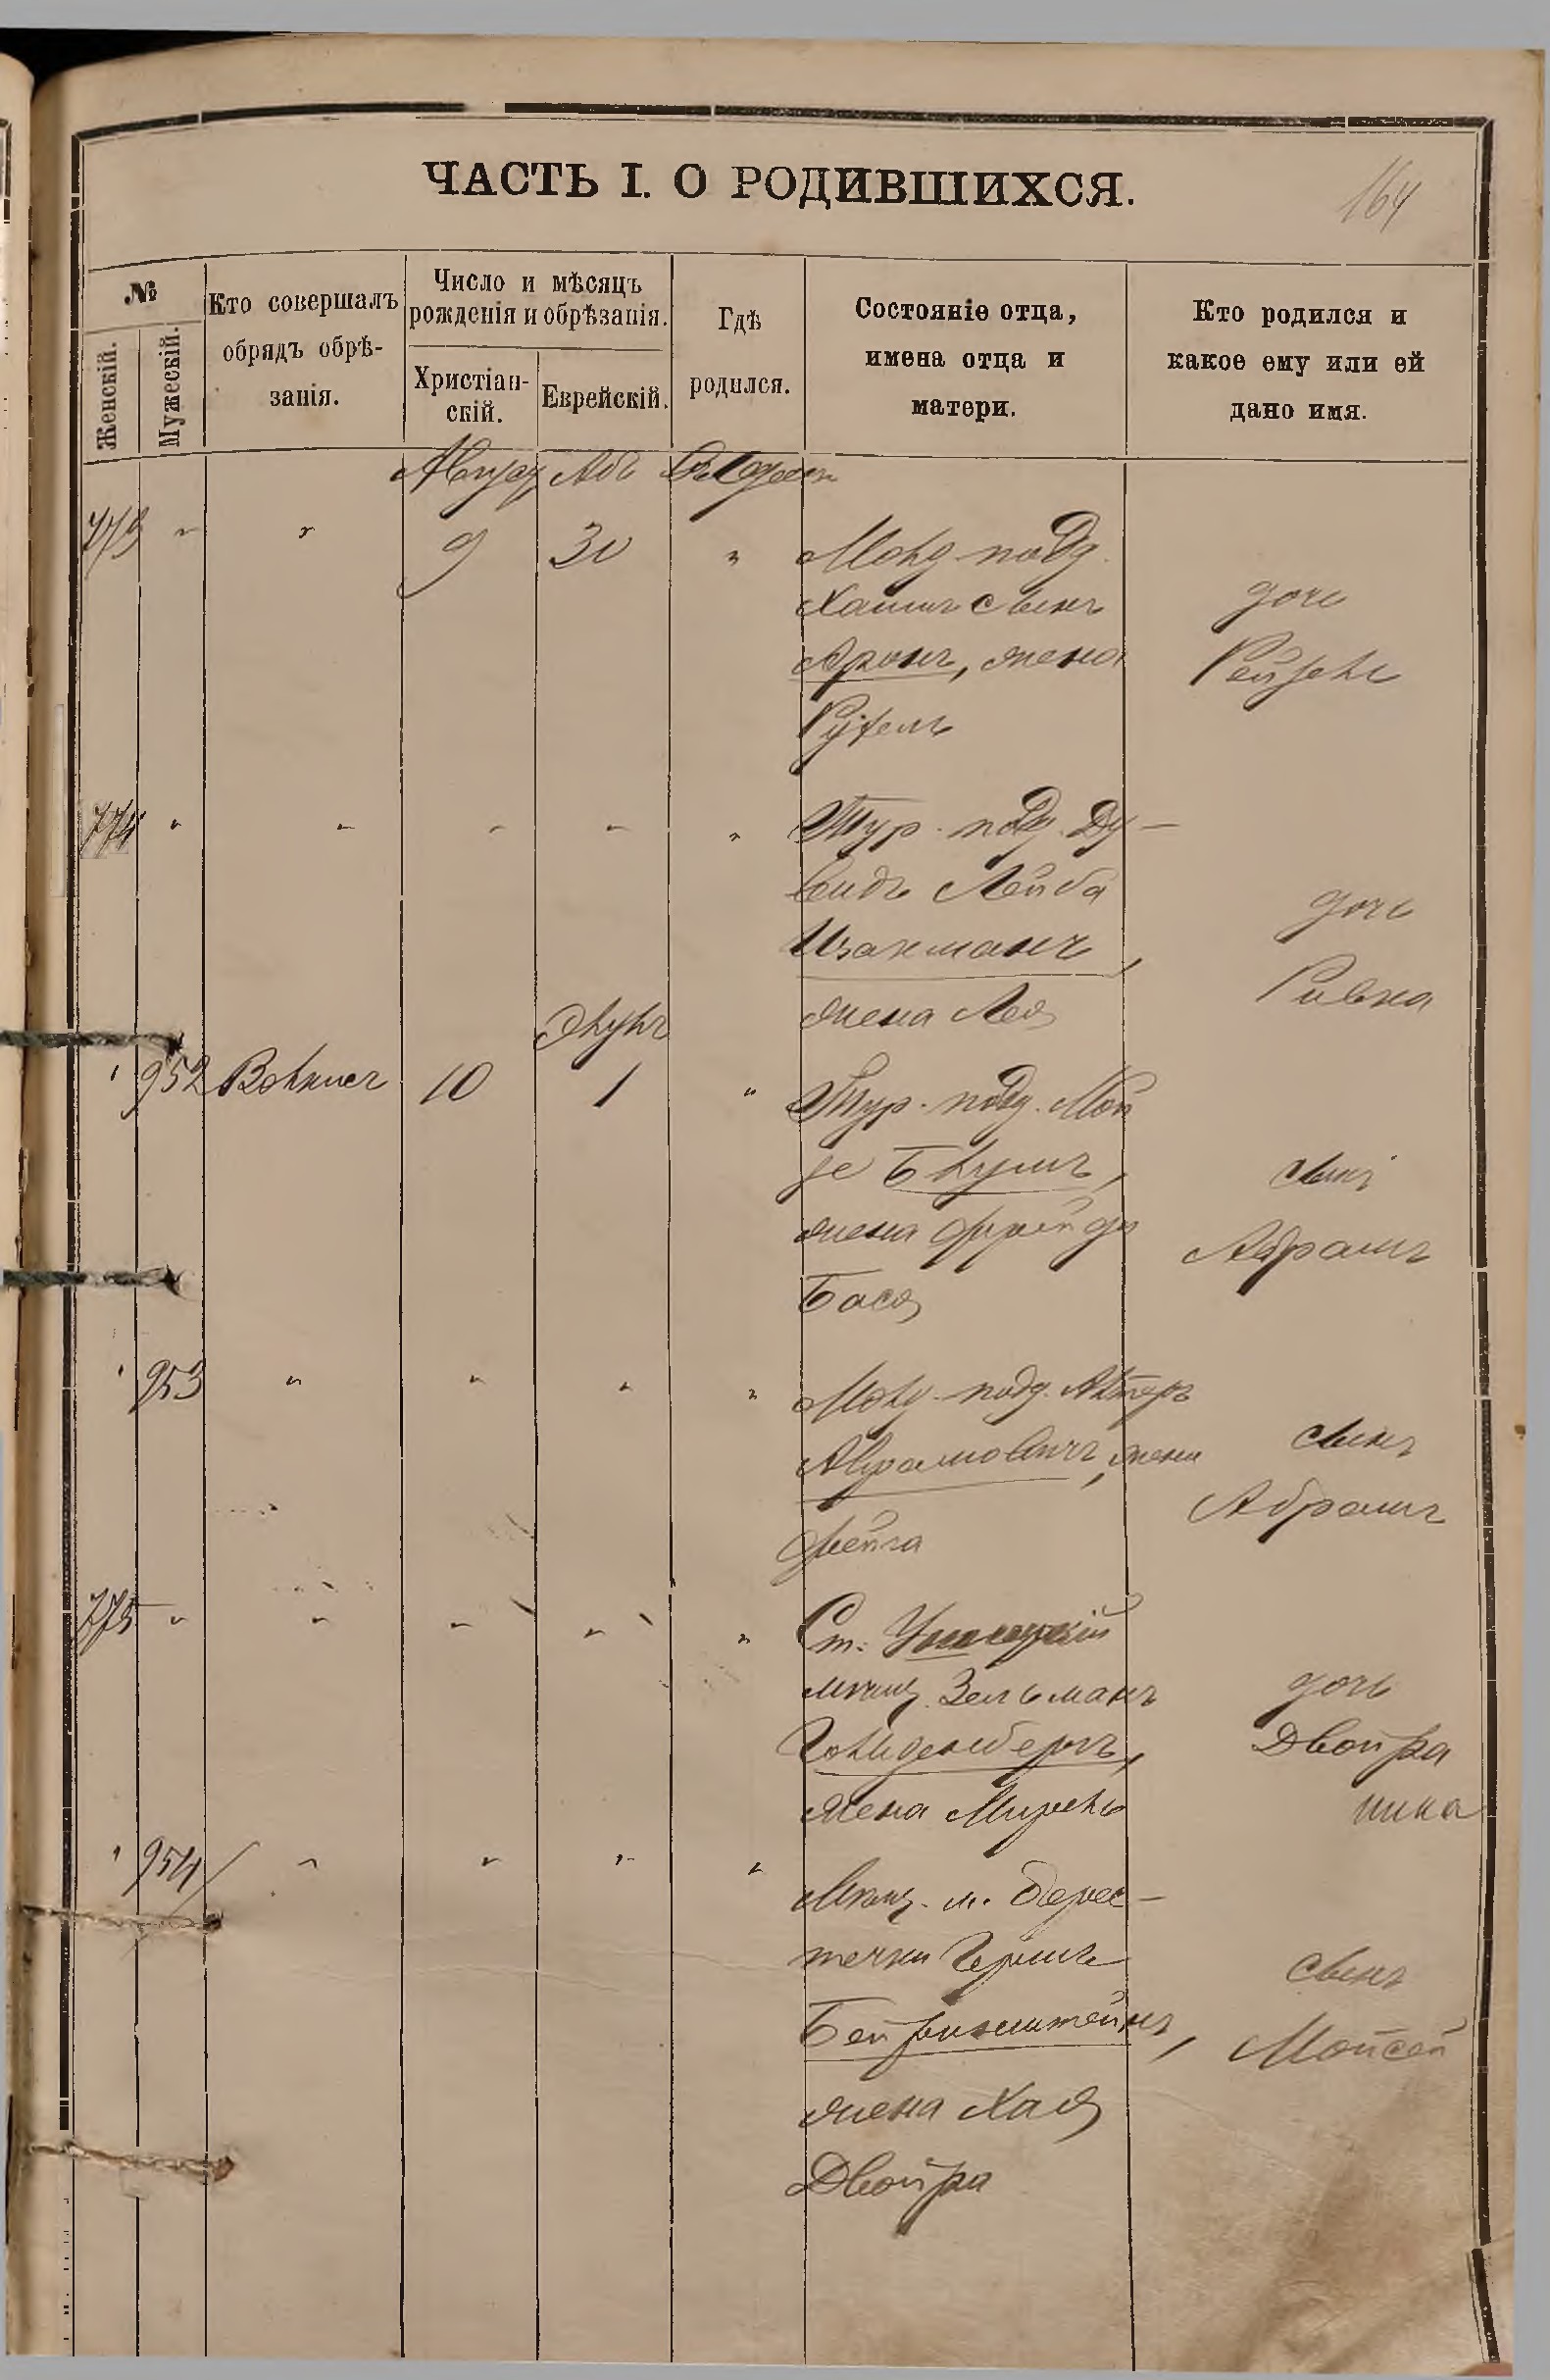 ЧАСТЬ I. О РОДИВШИХСЯ.
164
№
Женскій.
Мужескій.
Кто совершалъ
обрядъ обрѣ-
занія.
Число и мѣсяцъ
рожденія и обрѣзанія.
Христіан-
скій.
Еврейскій.
Гдѣ
родился.
Состояніе отца,
имена отца и
матери.
Кто родился и
какое ему или ей
дано имя.
Август Абъ
773 " " 9 30 " Молд. подд.
Хаимъ сынъ
Аронъ, жена
дочь
Рейзель
774 " " " " " Тур. подд. Ду-
видъ Лейба
Изакманъ,
жена Лея
дочь
Ривка
Элулъ
" 952 Волкисъ 10 1 " Тур. подд. Мой
зе Блумъ,
жена Фрейда
Бася
сынъ
Абрамъ
" 953 " " " " Молд. подд. Алтеръ
Аврамовичъ, жена
Фейга
сынъ
Абрамъ
775 " " " " " Ст.
мѣщ. Зельманъ
Голденбергъ,
жена
дочь
Двойра
" 954 " " " " Мѣщ. м. Берес-
течки Гершъ
Бейренштейнъ,
жена Хая
Двойра
сынъ
Мойсей